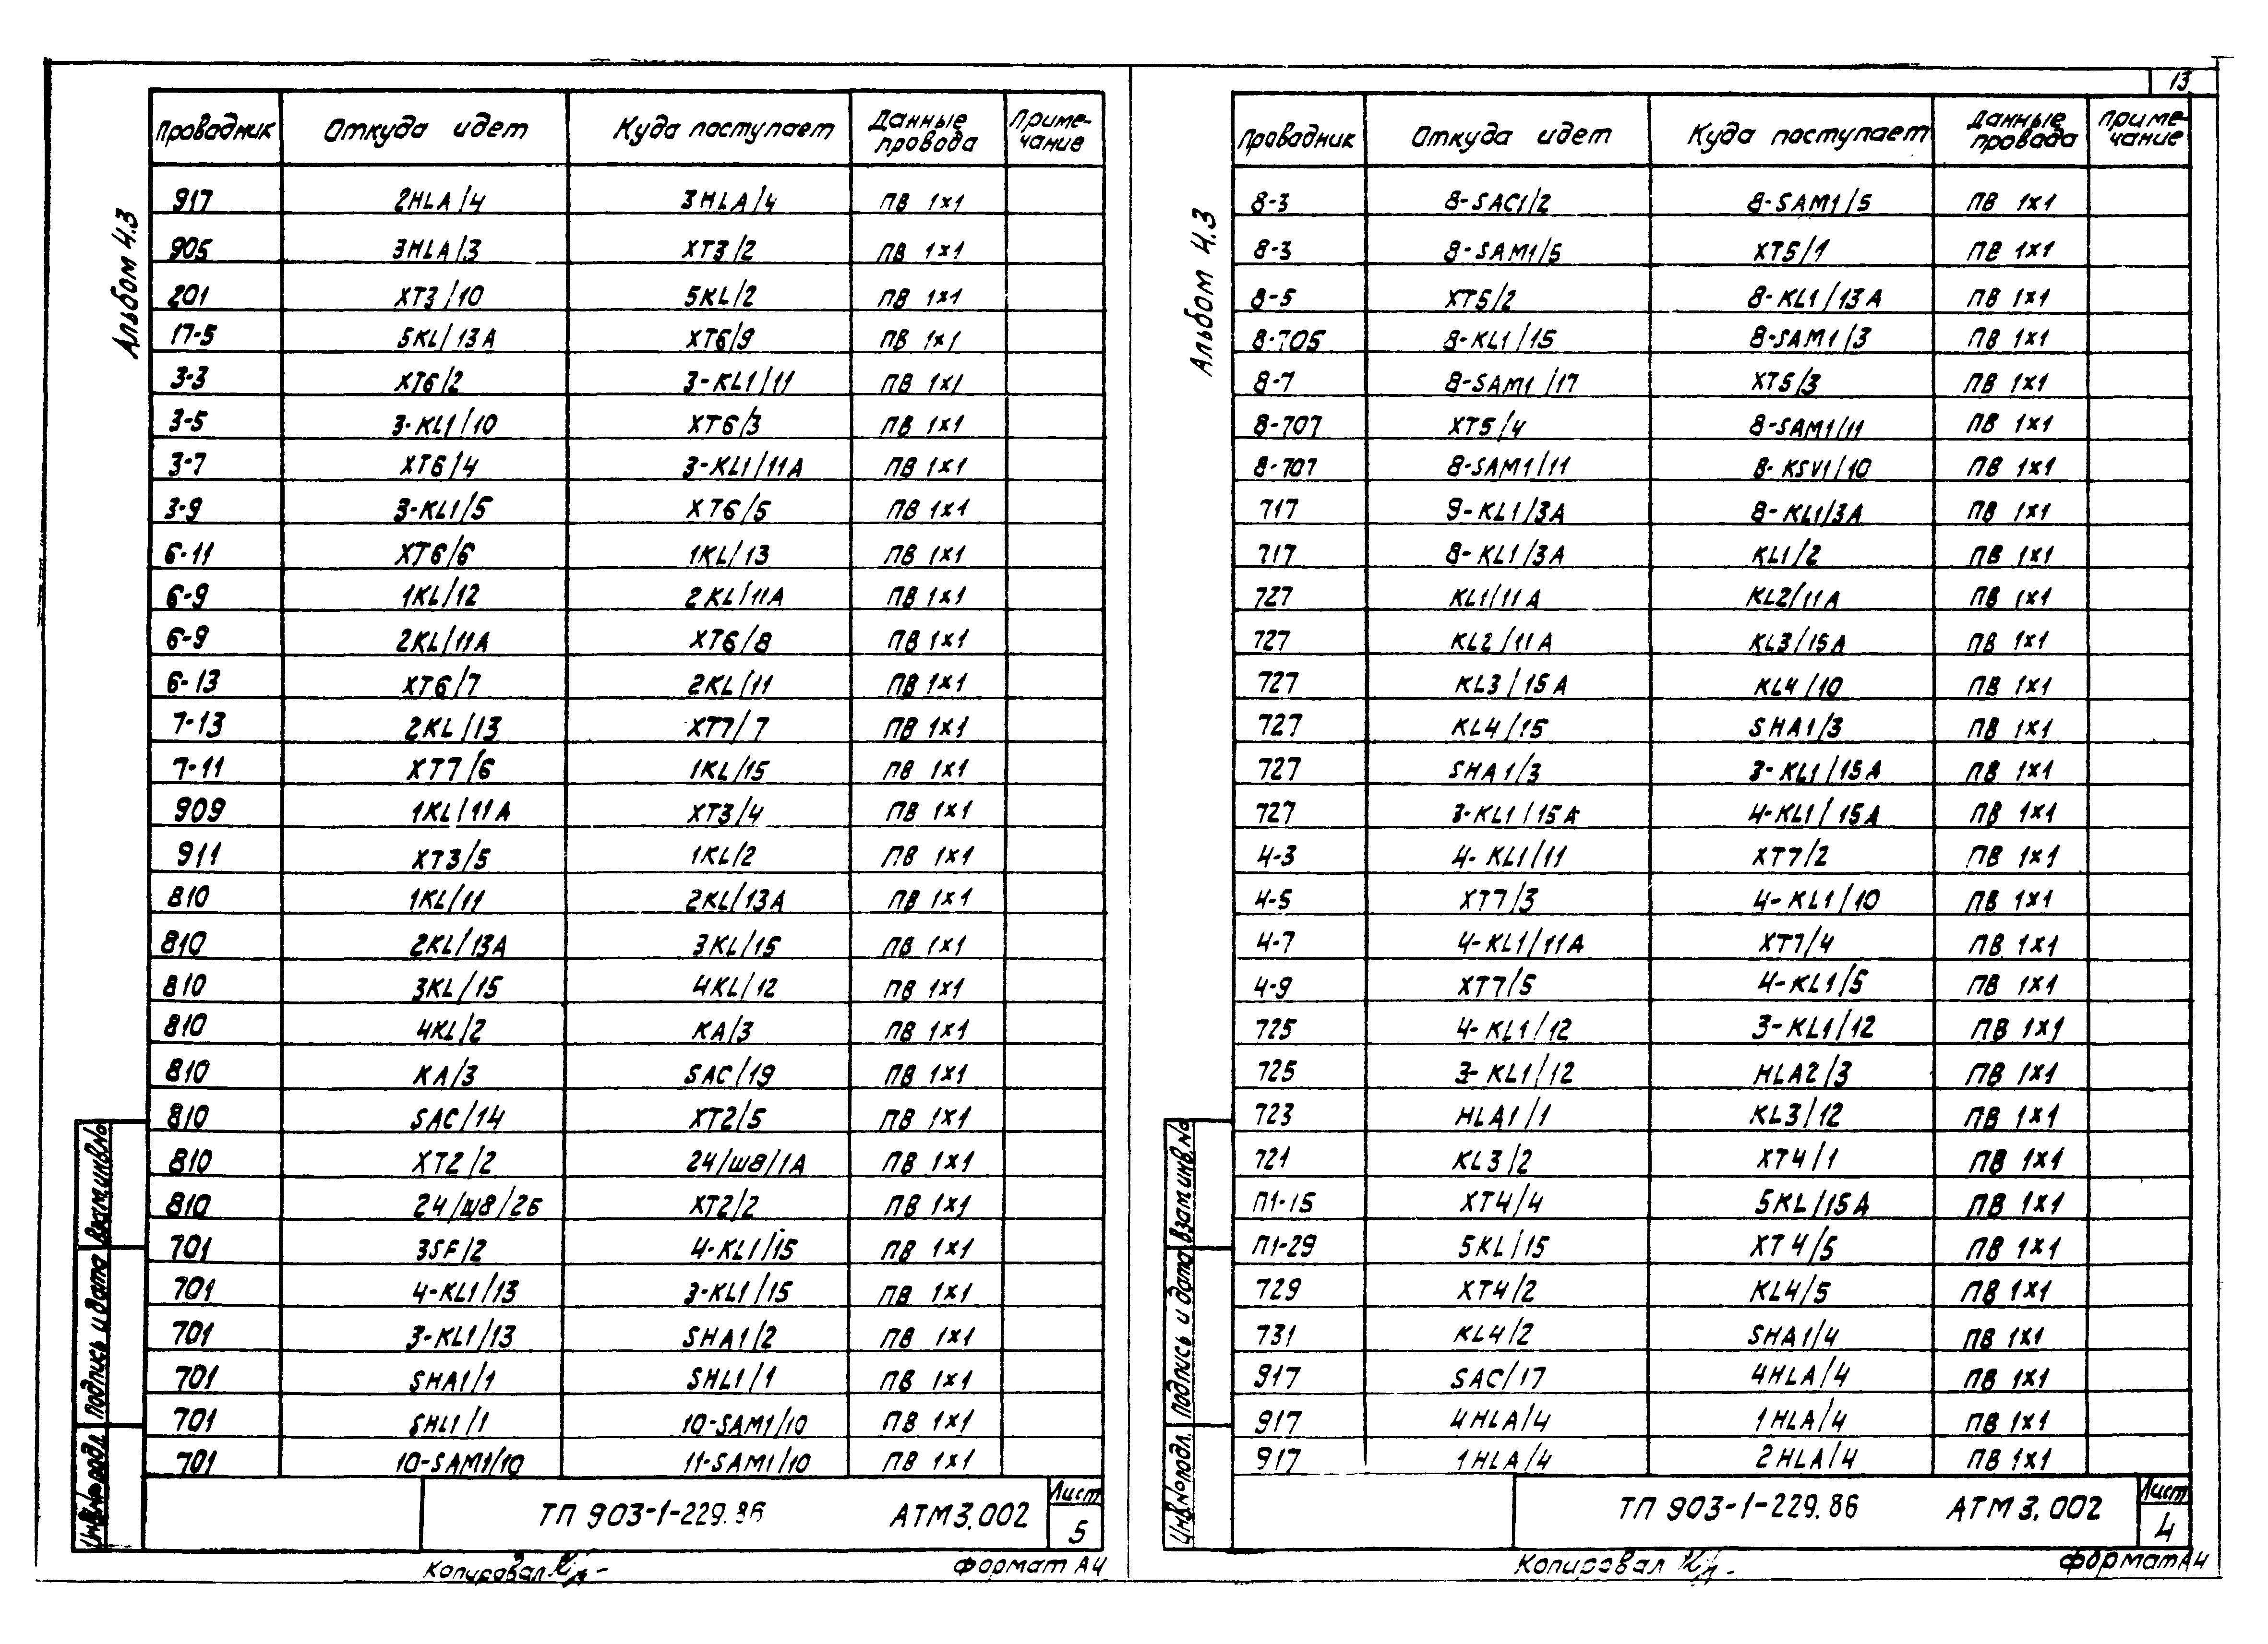 13
Альбом 4.3
Проводник Откуда идет Куда поступает Данные провода Приме-чание
917 2HLA/4 3HLA/4 ПВ 1х1
905 3HLA/3 XT3/2 ПВ 1х1
201 XT3/10 5KL/2 ПВ 1х1
17-5 5KL/13A XT6/9 ПВ 1х1
3-3 XT6/2 3-KL1/11 ПВ 1х1
3-5 3-KL1/10 XT6/3 ПВ 1х1
3-7 XT6/4 3-KL1/11A ПВ 1х1
3-9 3-KL1/5 XT6/5 ПВ 1х1
6-11 XT6/6 1KL/13 ПВ 1х1
6-9 1KL/12 2KL/11A ПВ 1х1
6-9 2KL/11A XT6/8 ПВ 1х1
6-13 XT6/7 2KL/11 ПВ 1х1
7-13 2KL/13 XT7/7 ПВ 1х1
7-11 XT7/6 1KL/15 ПВ 1х1
909 1KL/11A XT3/4 ПВ 1х1
911 XT3/5 1KL/2 ПВ 1х1
810 1KL/11 2KL/13A ПВ 1х1
810 2KL/13A 3KL/15 ПВ 1х1
810 3KL/15 4KL/12 ПВ 1х1
810 4KL/2 KA/3 ПВ 1х1
810 KA/3 SAC/19 ПВ 1х1
810 SAC/14 XT2/5 ПВ 1х1
810 XT2/2 24/Ш8/1А ПВ 1х1
810 24/Ш8/2Б XT2/2 ПВ 1х1
701 3SF/2 4-KL1/15 ПВ 1х1
701 4-KL1/13 3-KL1/15 ПВ 1х1
701 3-KL1/13 SHA1/2 ПВ 1х1
701 SHA1/1 SHL1/1 ПВ 1х1
701 SHL1/1 10-SAM1/10 ПВ 1х1
701 10-SAM1/10 11-SAM1/10 ПВ 1х1
Взам.инв.№
Подпись и дата
Инв.№подл.
ТП 903-1-229.86 АТМ3.002
Лист
5
Копировал
Формат А4
Альбом 4.3
Проводник Откуда идет Куда поступает Данные провода Приме-чание
8-3 8-SAC1/2 8-SAM1/5 ПВ 1х1
8-3 8-SAM1/5 XT5/1 ПВ 1х1
8-5 XT5/2 8-KL1/13A ПВ 1х1
8-705 8-KL1/15 8-SAM1/3 ПВ 1х1
8-7 8-SAM1/17 XT5/3 ПВ 1х1
8-707 XT5/4 8-SAM1/11 ПВ 1х1
8-707 8-SAM1/11 8-KSV1/10 ПВ 1х1
717 9-KL1/3A 8-KL1/3A ПВ 1х1
717 8-KL1/3A KL1/2 ПВ 1х1
727 KL1/11A KL2/11A ПВ 1х1
727 KL2/11A KL3/15A ПВ 1х1
727 KL3/15A KL4/10 ПВ 1х1
727 KL4/15 SHA1/3 ПВ 1х1
727 SHA1/3 3-KL1/15A ПВ 1х1
727 3-KL1/15A 4-KL1/15A ПВ 1х1
4-3 4-KL1/11 XT7/2 ПВ 1х1
4-5 XT7/3 4-KL1/10 ПВ 1х1
4-7 4-KL1/11A XT7/4 ПВ 1х1
4-9 XT7/5 4-KL1/5 ПВ 1х1
725 4-KL1/12 3-KL1/12 ПВ 1х1
725 3-KL1/12 HLA2/3 ПВ 1х1
723 HLA1/1 KL3/12 ПВ 1х1
721 KL3/2 XT4/1 ПВ 1х1
П1-15 XT4/4 5KL/15A ПВ 1х1
П1-29 5KL/15 XT4/5 ПВ 1х1
729 XT4/2 KL4/5 ПВ 1х1
731 KL4/2 SHA1/4 ПВ 1х1
917 SAC/17 4HLA/4 ПВ 1х1
917 4HLA/4 1HLA/4 ПВ 1х1
917 1HLA/4 2HLA/4 ПВ 1х1
Взам.инв.№
Подпись и дата
Инв.№подл.
ТП 903-1-229.86 АТМ3.002
Лист
4
Копировал
Формат А4